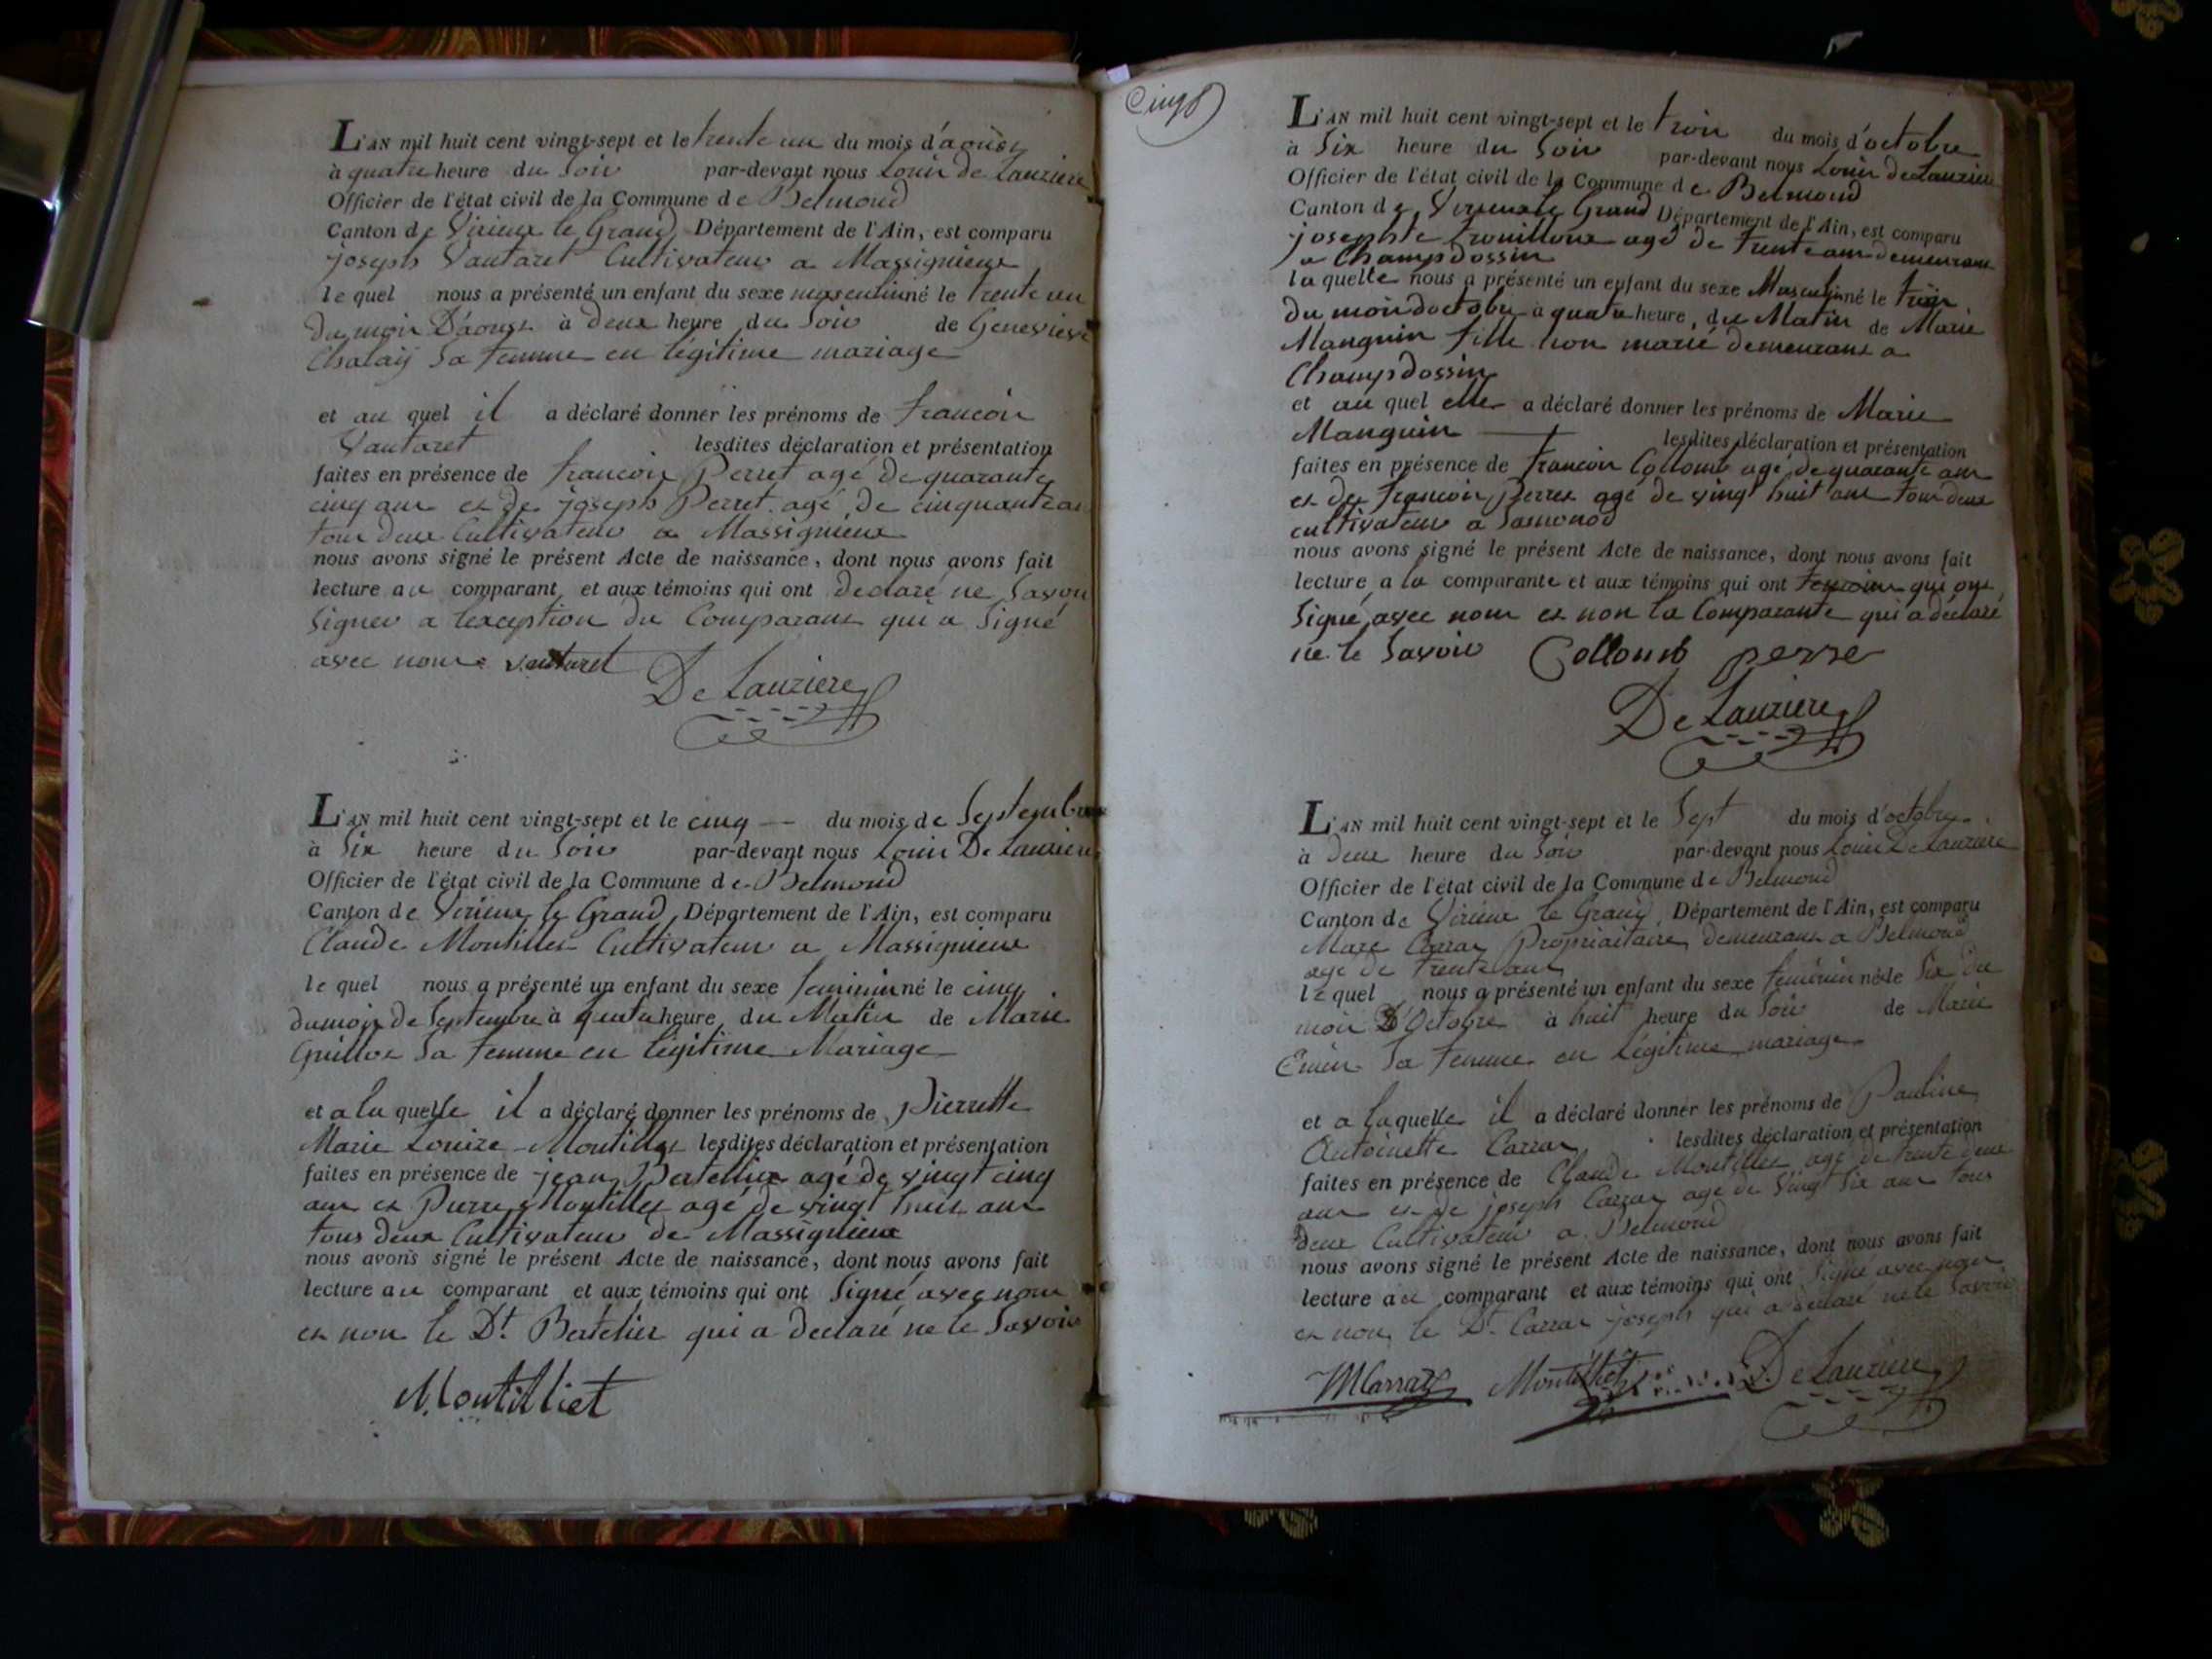 L'AN mil huit cent vingt-sept et le trente un du mois d'aoust
à quatre heure du Soir par-devant nous Louis de Lauziere
Officier de l'état civil de la Commune de Belmond
Canton de Virieux le Grand, Département de l'Ain, est comparu
joseph Vautaret Cultivateur a Massignieux
le quel nous a présenté un enfant du sexe masculin né le trente un
du mois D'aoust à deux heure du Soir de Genevieve
Chalay Sa femme en légitime mariage
et au quel il a déclaré donner les prénoms de francois
Vautaret lesdites déclaration et présentation
faites en présence de francois Perret agé de quarante
cinq ans et de joseph Perret agé de cinquante ans
tous deux Cultivateur a Massignieux
nous avons signé le présent Acte de naissance, dont nous avons fait
lecture au comparant et aux témoins qui ont declaré ne Savoir
Signer a lexception du Comparant qui a Signé
avec nous vautaret
De Lauziere
L'AN mil huit cent vingt-sept et le cinq du mois de Septembre
à Six heure du Soir par-devant nous Louis De Lauziere
Officier de l'état civil de la Commune de Belmond
Canton de Virieux le Grand, Département de l'Ain, est comparu
Claude Montillet Cultivateur a Massignieux
le quel nous a présenté un enfant du sexe feminin né le cinq
du mois de Septembre à quatre heure du Matin de Marie
Guillot Sa femme en légitime Mariage
et a la quelle il a déclaré donner les prénoms de Pierrette
Marie Louize Montillet lesdites déclaration et présentation
faites en présence de jean Bertellier agé de vingt cinq
ans et Pierre Montillet agé de vingt huit ans
tous deux Cultivateur de Massignieux
nous avons signé le présent Acte de naissance, dont nous avons fait
lecture au comparant et aux témoins qui ont Signé avec nous
et non le Dt. Bertelier qui a declaré ne le Savoir
Montilliet
Cinq
L'AN mil huit cent vingt-sept et le trois du mois d'octobre
à Six heure du Soir par-devant nous Louis de Lauziere
Officier de l'état civil de la Commune de Belmond
Canton de Virieux le Grand Département de l'Ain, est comparu
josephte trouilloux agé de trente ans demeurant
a Champdossin
la quelle nous a présenté un enfant du sexe Masculin né le trois
du mois doctobre à quatre heure, du Matin de Marie
Manguin fille non marié demeurant a
Champdossin
et au quel elle a déclaré donner les prénoms de Marie
Manguin lesdites déclaration et présentation
faites en présence de francois Collomb agé de quarante ans
et de francois Perret agé de vingt huit ans tous deux
cultivateur a Samonod
nous avons signé le présent Acte de naissance, dont nous avons fait
lecture a la comparante et aux témoins qui ont temoins qui ont
Signé avec nous et non la Comparante qui a déclaré
ne le Savoir Collomb perre
De Lauziere
L'AN mil huit cent vingt-sept et le Sept du mois d'octobre
à deux heure du Soir par-devant nous Louis De Lauziere
Officier de l'état civil de la Commune de Belmond
Canton de Virieux le Grand, Département de l'Ain, est comparu
Marc Carrar Propriaitaire demeurant a Belmond
agé de trente ans
le quel nous a présenté un enfant du sexe feminin né le Six du
mois D'Octobre à huit heure du Soir de Marie
Sa femme en légitime mariage
et a laquelle il a déclaré donner les prénoms de Pauline
Antoinette Carrar lesdites déclaration et présentation
faites en présence de Claude Montillet agé de trente deux
ans et de joseph Carrar agé de vingt Six ans tous
deux Cultivateur a Belmond
nous avons signé le présent Acte de naissance, dont nous avons fait
lecture au comparant et aux témoins qui ont Signé avec nous
et non le Dt. Carrar joseph qui a declaré ne le Savoir
MCarraz Montilliet De Lauziere